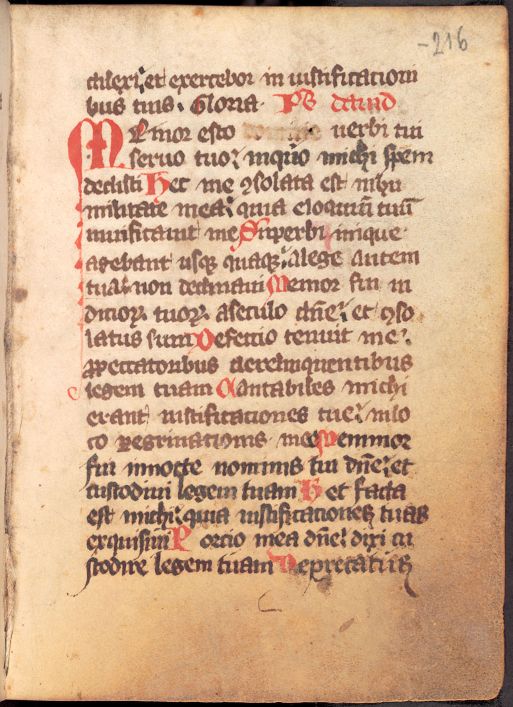 -216
dilexi: et exercebor in iustificationi
bus tuis. Gloria. Ps dauid
Memor esto uerbi tui
seruo tuo: in quo michi spem
dedisti Hec me ꝯsolata est in hu
militate mea: quia eloquiū tuū
uiuificauit me Superbi inique
agebant usqꝫ quaqꝫ: alege autem
tua: non declinaui Memor fui iu
dicioꝝ tuoꝝ aseculo dn̄e: et ꝯso
latus sum Defectio tenuit me:
ꝓpeccatoribus derelinquentibus
legem tuam Cantabiles michi
erant iustificationes tue: inlo
co peregrinationis mee Memmor
fui innocte nominis tui dn̄e: et
custodiui legem tuam Hec facta
est michi: quia iustificationes tuas
exquisiui Porcio mea dn̄e: dixi cu
stodire legem tuam Deprecatus